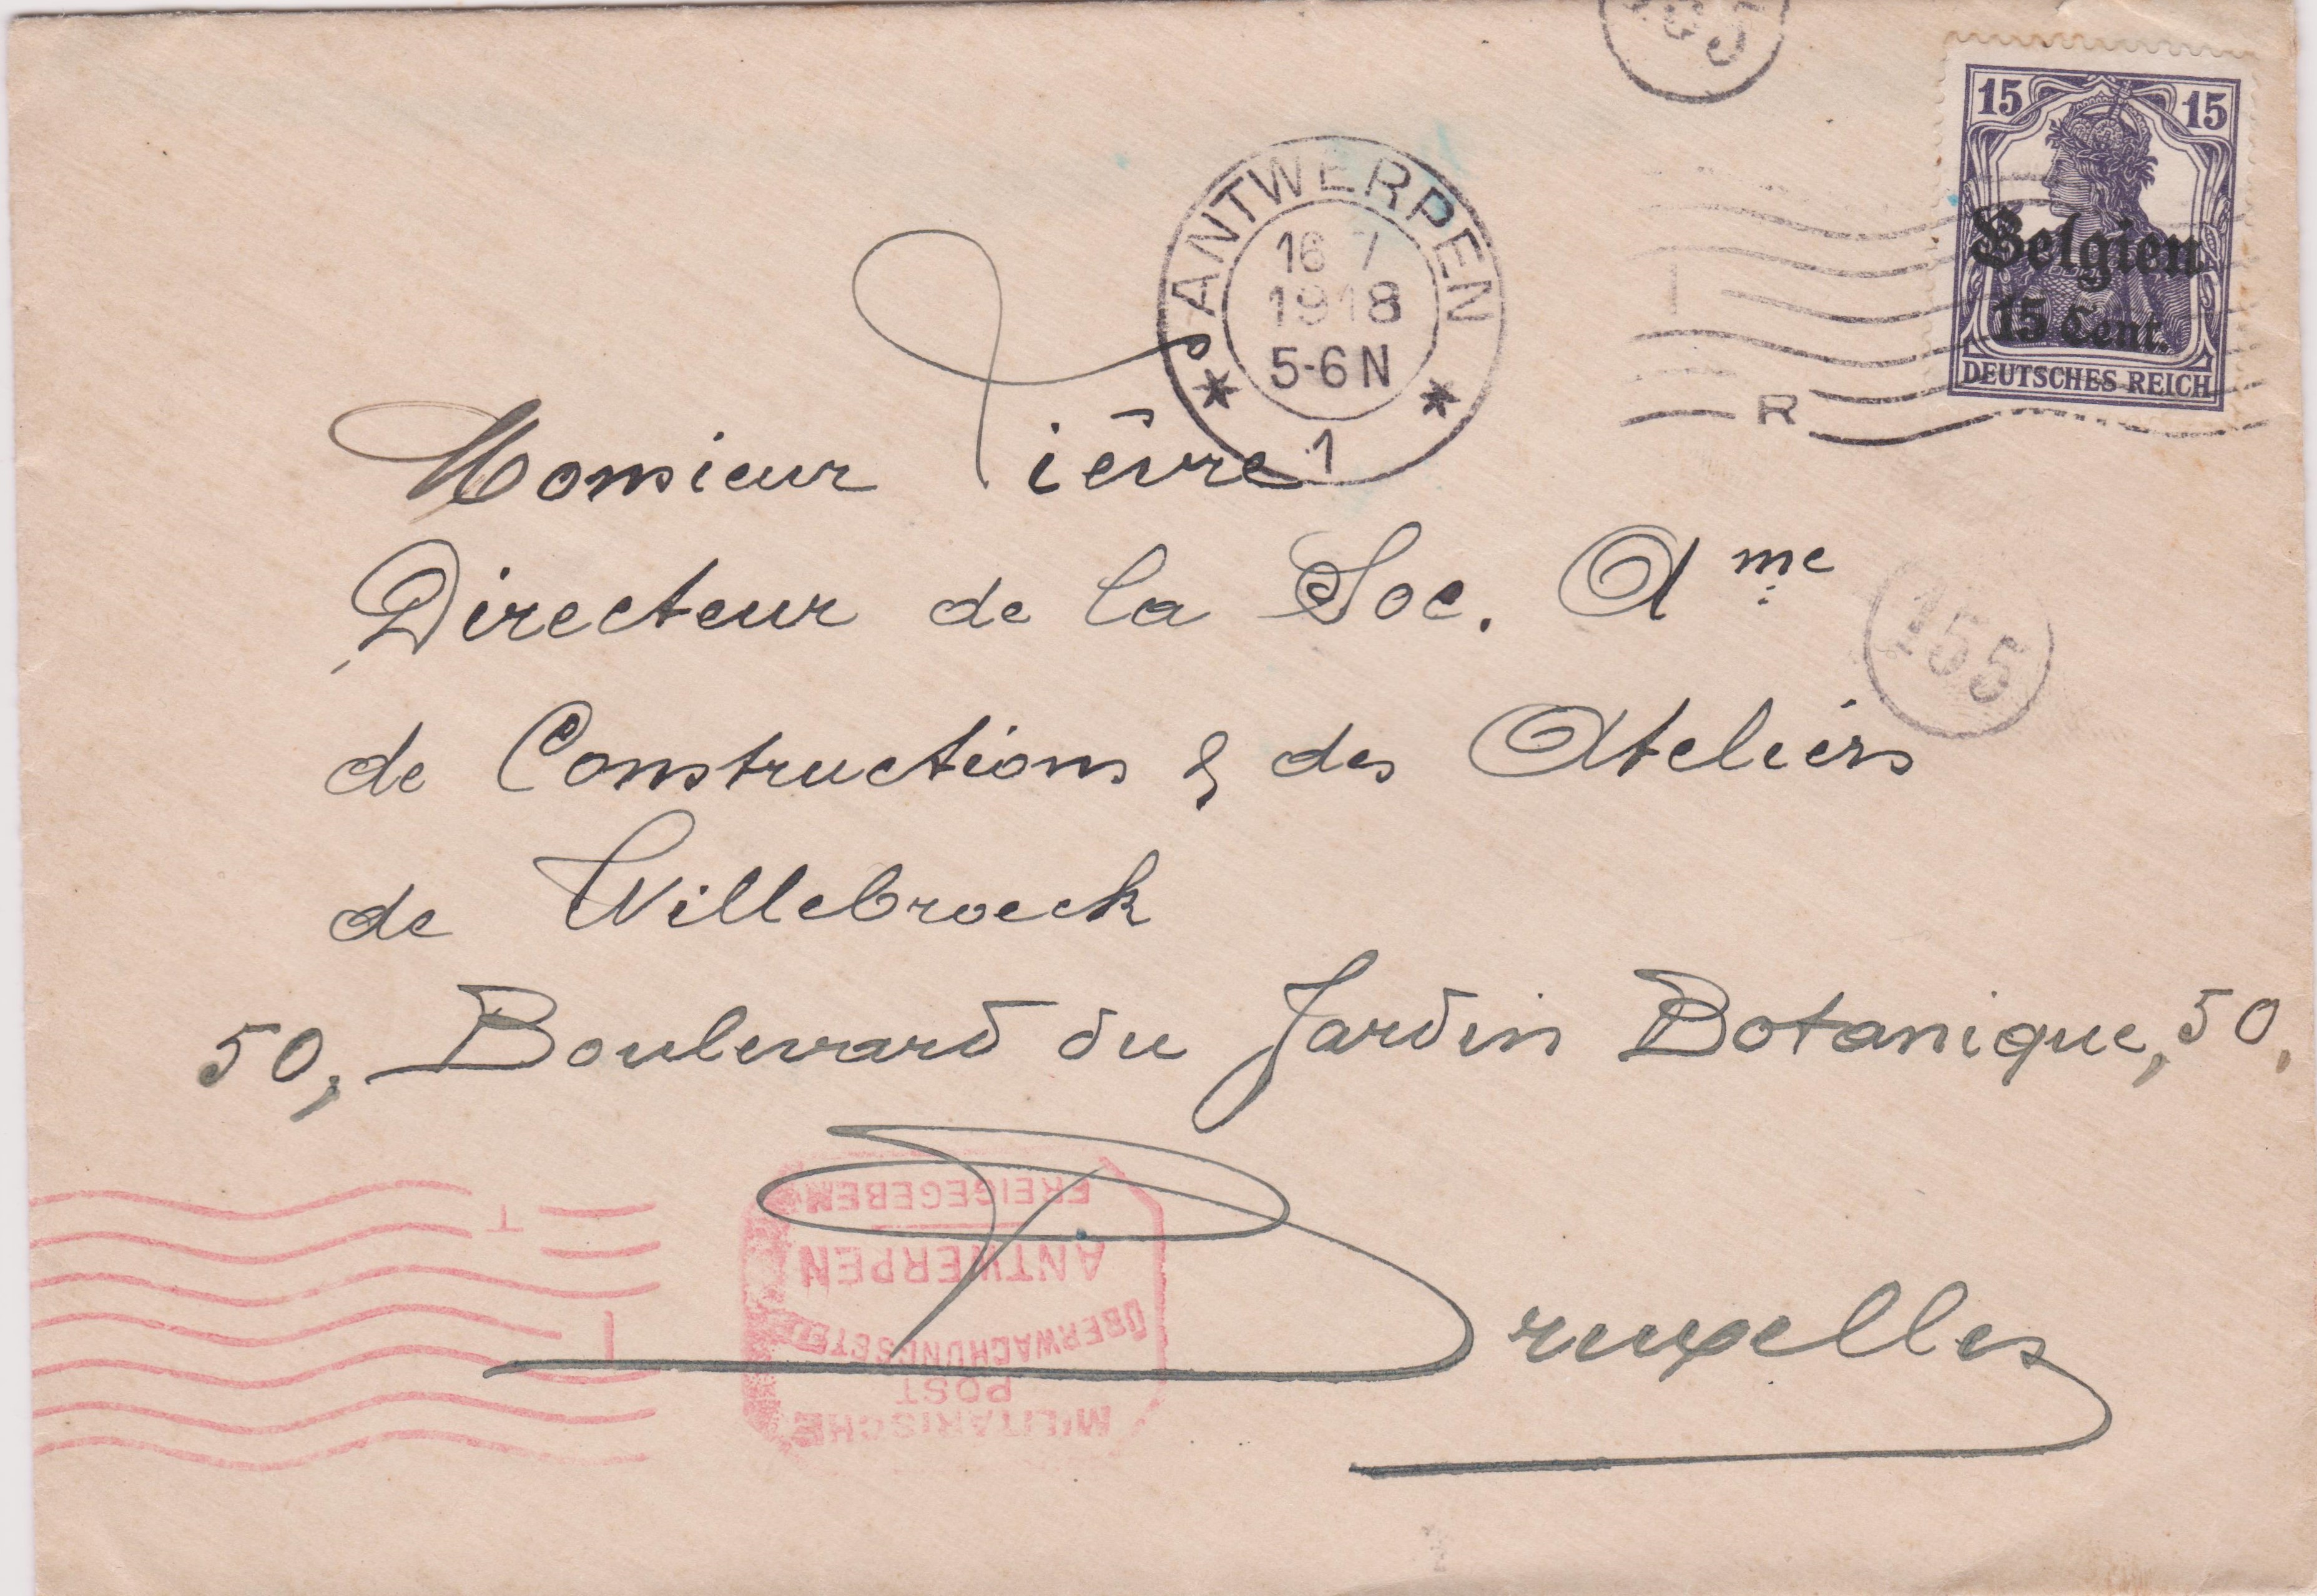 15 15
Belgien
15 Cent.
DEUTSCHES REICH
ANTWERPEN
16 7
1918
5-6 N
* *
1
R
Monsieur Lièvre
Directeur de la Soc. Ame
155
de Constructions & des Ateliers
de Willebroeck
50, Boulevard du Jardin Botanique, 50,
Bruxelles
MILITÄRISCHE
POST
ÜBERWACHUNGSSTELLE
ANTWERPEN
FREIGEGEBEN
T